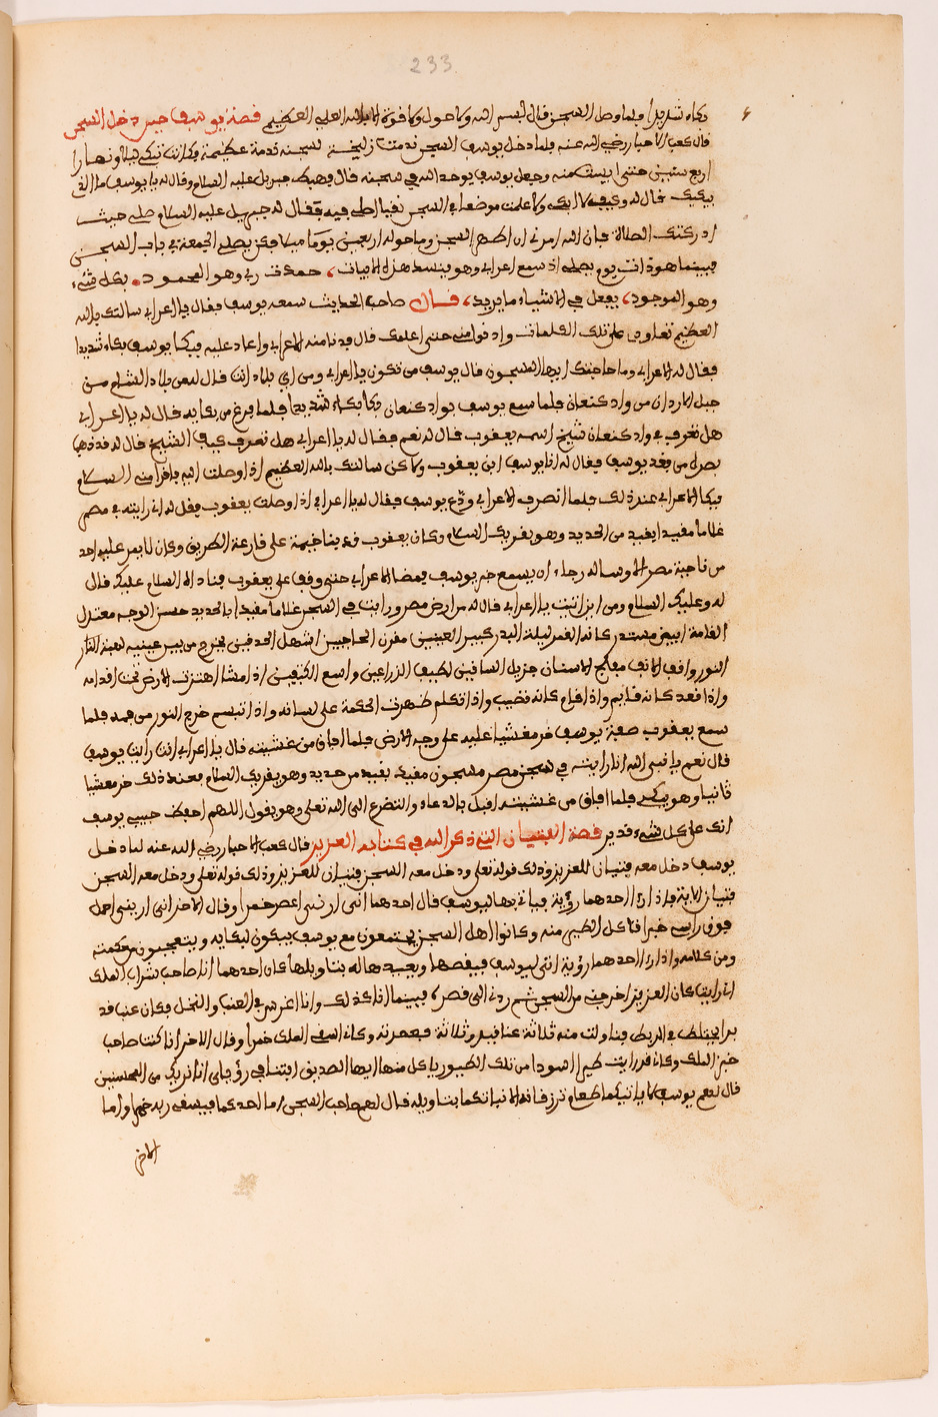 233
بكاء شديدا فلما وصل السجن قال بسم الله ولا حول ولا قوة الا بالله العلي العظيم قصة يوسف حين دخل السجن
قال كعب الاحبار رضي الله عنه فلما دخل يوسف السجن ندمت زليخة لسجنه ندمة عظيمة وكانت تبكي ليلا ونهارا
اربع سنين حتى ايست منه وجعل يوسف يوحد الله في سجنه قال فهبط جبريل عليه السلام وقال له يا يوسف ما الذي
يبكيك قال له وكيف لا ابكي ولا علمت موضعا في السجن نقيا اصلي فيه فقال له جبريل عليه السلام صلي حيث
ادركتك الصلاة فان الله امرني ان اطهر السجن وما حوله اربعين يوما ميلا فكن يصلي الجمعة في باب السجن
فبينما هو ذات يوم يصلي اذ سمع اعرابي وهو ينشد هذه الابيات حمدت ربي وهو المحمود بكل شيء
وهو الموجود يفعل في الاشياء ما يريد قال صاحب الحديث سمعه يوسف فقال يا اعرابي سالتك بالله
العظيم تعاود علي تلك الكلمات وادنوا مني حتى اعلمك قال فدنا منه الاعرابي واعاد عليه فبكا يوسف بكاء شديدا
فقال له الاعرابي وما حاجتك ايها المسجون قال يوسف من تكون يا اعرابي ومن اي بلاد انت قال له من بلاد الشام من
جبل الاردان من واد كنعان فلما سمع يوسف بواد كنعان بكا بكاء شديدا فلما فرغ من بكايه قال له يا اعرابي
هل تعرف في واد كنعان شيخ اسمه يعقوب قال له نعم فقال له يا اعرابي هل تعرف كيف الشيخ قال له قد ذهب
بصره من بعد يوسف فقال له انا يوسف ابن يعقوب ولاكن سالتك بالله العظيم اذا وصلت اليه فاقرا مني السلام
فبكا الاعرابي عند ذلك فلما انصرف الاعرابي ودع يوسف فقال له يا اعرابي اذا وصلت يعقوب فقل له اني رايت في مصر
غلاما مقيدا بقيد من الحديد وهو يقريك السلام وكان يعقوب قد بنا خيمة على قارعة الطريق وكان لا يمر عليه احد
من ناحية مصر الا وساله رجاء ان يسمع خبر يوسف فمضا الاعرابي حتى وقف على يعقوب فناداه السلام عليك قال
له وعليك السلام ومن اين اتيت يا اعرابي قال له من ارض مصر ورايت في السجن غلاما مقيدا بالحديد حسن الوجه معتدل
القامة ابيض مستدير كانه القمر ليلة البدر كبير العينين مقرن الحاجبين اشهل الحدقين يخرج من بين عينيه لمعة النار
النور وافي الانف مفلج الاسنان جزيل الساقين لطيف الذراعين واسع الكتفين اذا مشا اهتزت الارض تحت اقدامه
واذا قعد كانه قايم واذا قام كانه قضيب واذا تكلم ظهرت الحكمة على لسانه واذا تبسم خرج النور من فمه فلما
سمع يعقوب صفة يوسف خر مغشيا عليه على وجه الارض فلما افاق من غشيته قال يا اعرابي انت رايت يوسف
قال نعم يا نبي الله انا رايته في سجن مصر مسجون مقيد بقيد من حديد وهو يقريك السلام فعند ذلك خر مغشيا
ثانيا وهو يبكي فلما افاق من غشيته اقبل بالدعاء والتضرع الى الله تعلى وهو يقول اللهم احفظ حبيبي يوسف
انك على كل شيء قدير قصة الفتيان التي ذكر الله في كتابه العزيز قال كعب الاحبار رضي الله عنه لما دخل
يوسف دخل معه فتيان للعزيز وذلك قوله تعلى ودخل معه السجن فتيان للعزيز وذلك قوله تعلى ودخل معه السجن
فتيان الاية فاذا راء احدهما رؤية فياتي بها ليوسف قال احدهما انى ارنى اعصر خمرا وقال الاخر انى ارينى احمل
فوق راسى خبزا تاكل الطير منه وكانوا اهل السجن يجتمعون مع يوسف يبكون لبكايه ويتعجبون من حكمته
ومن كلامه واذا راء احدهما رؤية اتى ليوسف فيقصها ويعيدها له بتاويلها كان احدهما انا صاحب شراب الملك
انا رايت كان العزيز اخرجني من السجن ثم ردني الى قصره فبينما انا كذلك وانا اغرس في العنب والنخل فكان عنب قد
فناولت منه ثلاثة عناقيد وثلاثة فعصرته وكاني اسقى الملك خمرا وقال الاخر انا كنت صاحب
خبز الملك وكاني قد رايت طيرا اسودا من تلك الطيور ياكل منها ايها الصديق افتنا في رؤياي انا نريك من المحسنين
قال لهم يوسف لا ياتيكما طعام ترزقانه الا نباتكما بتاويله قال لهم صاحب السجن اما احدكما فيسقى ربه خمرا واما
الاخر